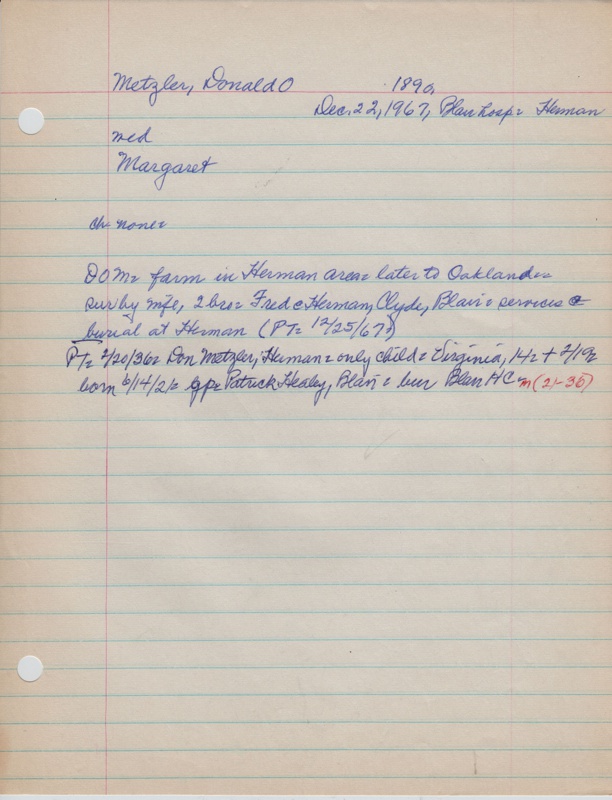 Metzler, Donald O 189
Dec. 22, 1967, Blair hosp = Herman
med
Margaret
ch = none =
DOM = farm in Herman area = later to Oakland =
sur by wfe, 2 bro = Fred c Herman, Clyde, Blair = services &
burial at Herman (PT = 12/25/67)
PT = 2/20/36 = Don Metzler, Herman = only child = Virginia, 14 = + 2/19 =
born 6/14/21 = gp = Patrick Healey, Blair = bur Blair HC = m (21-35)